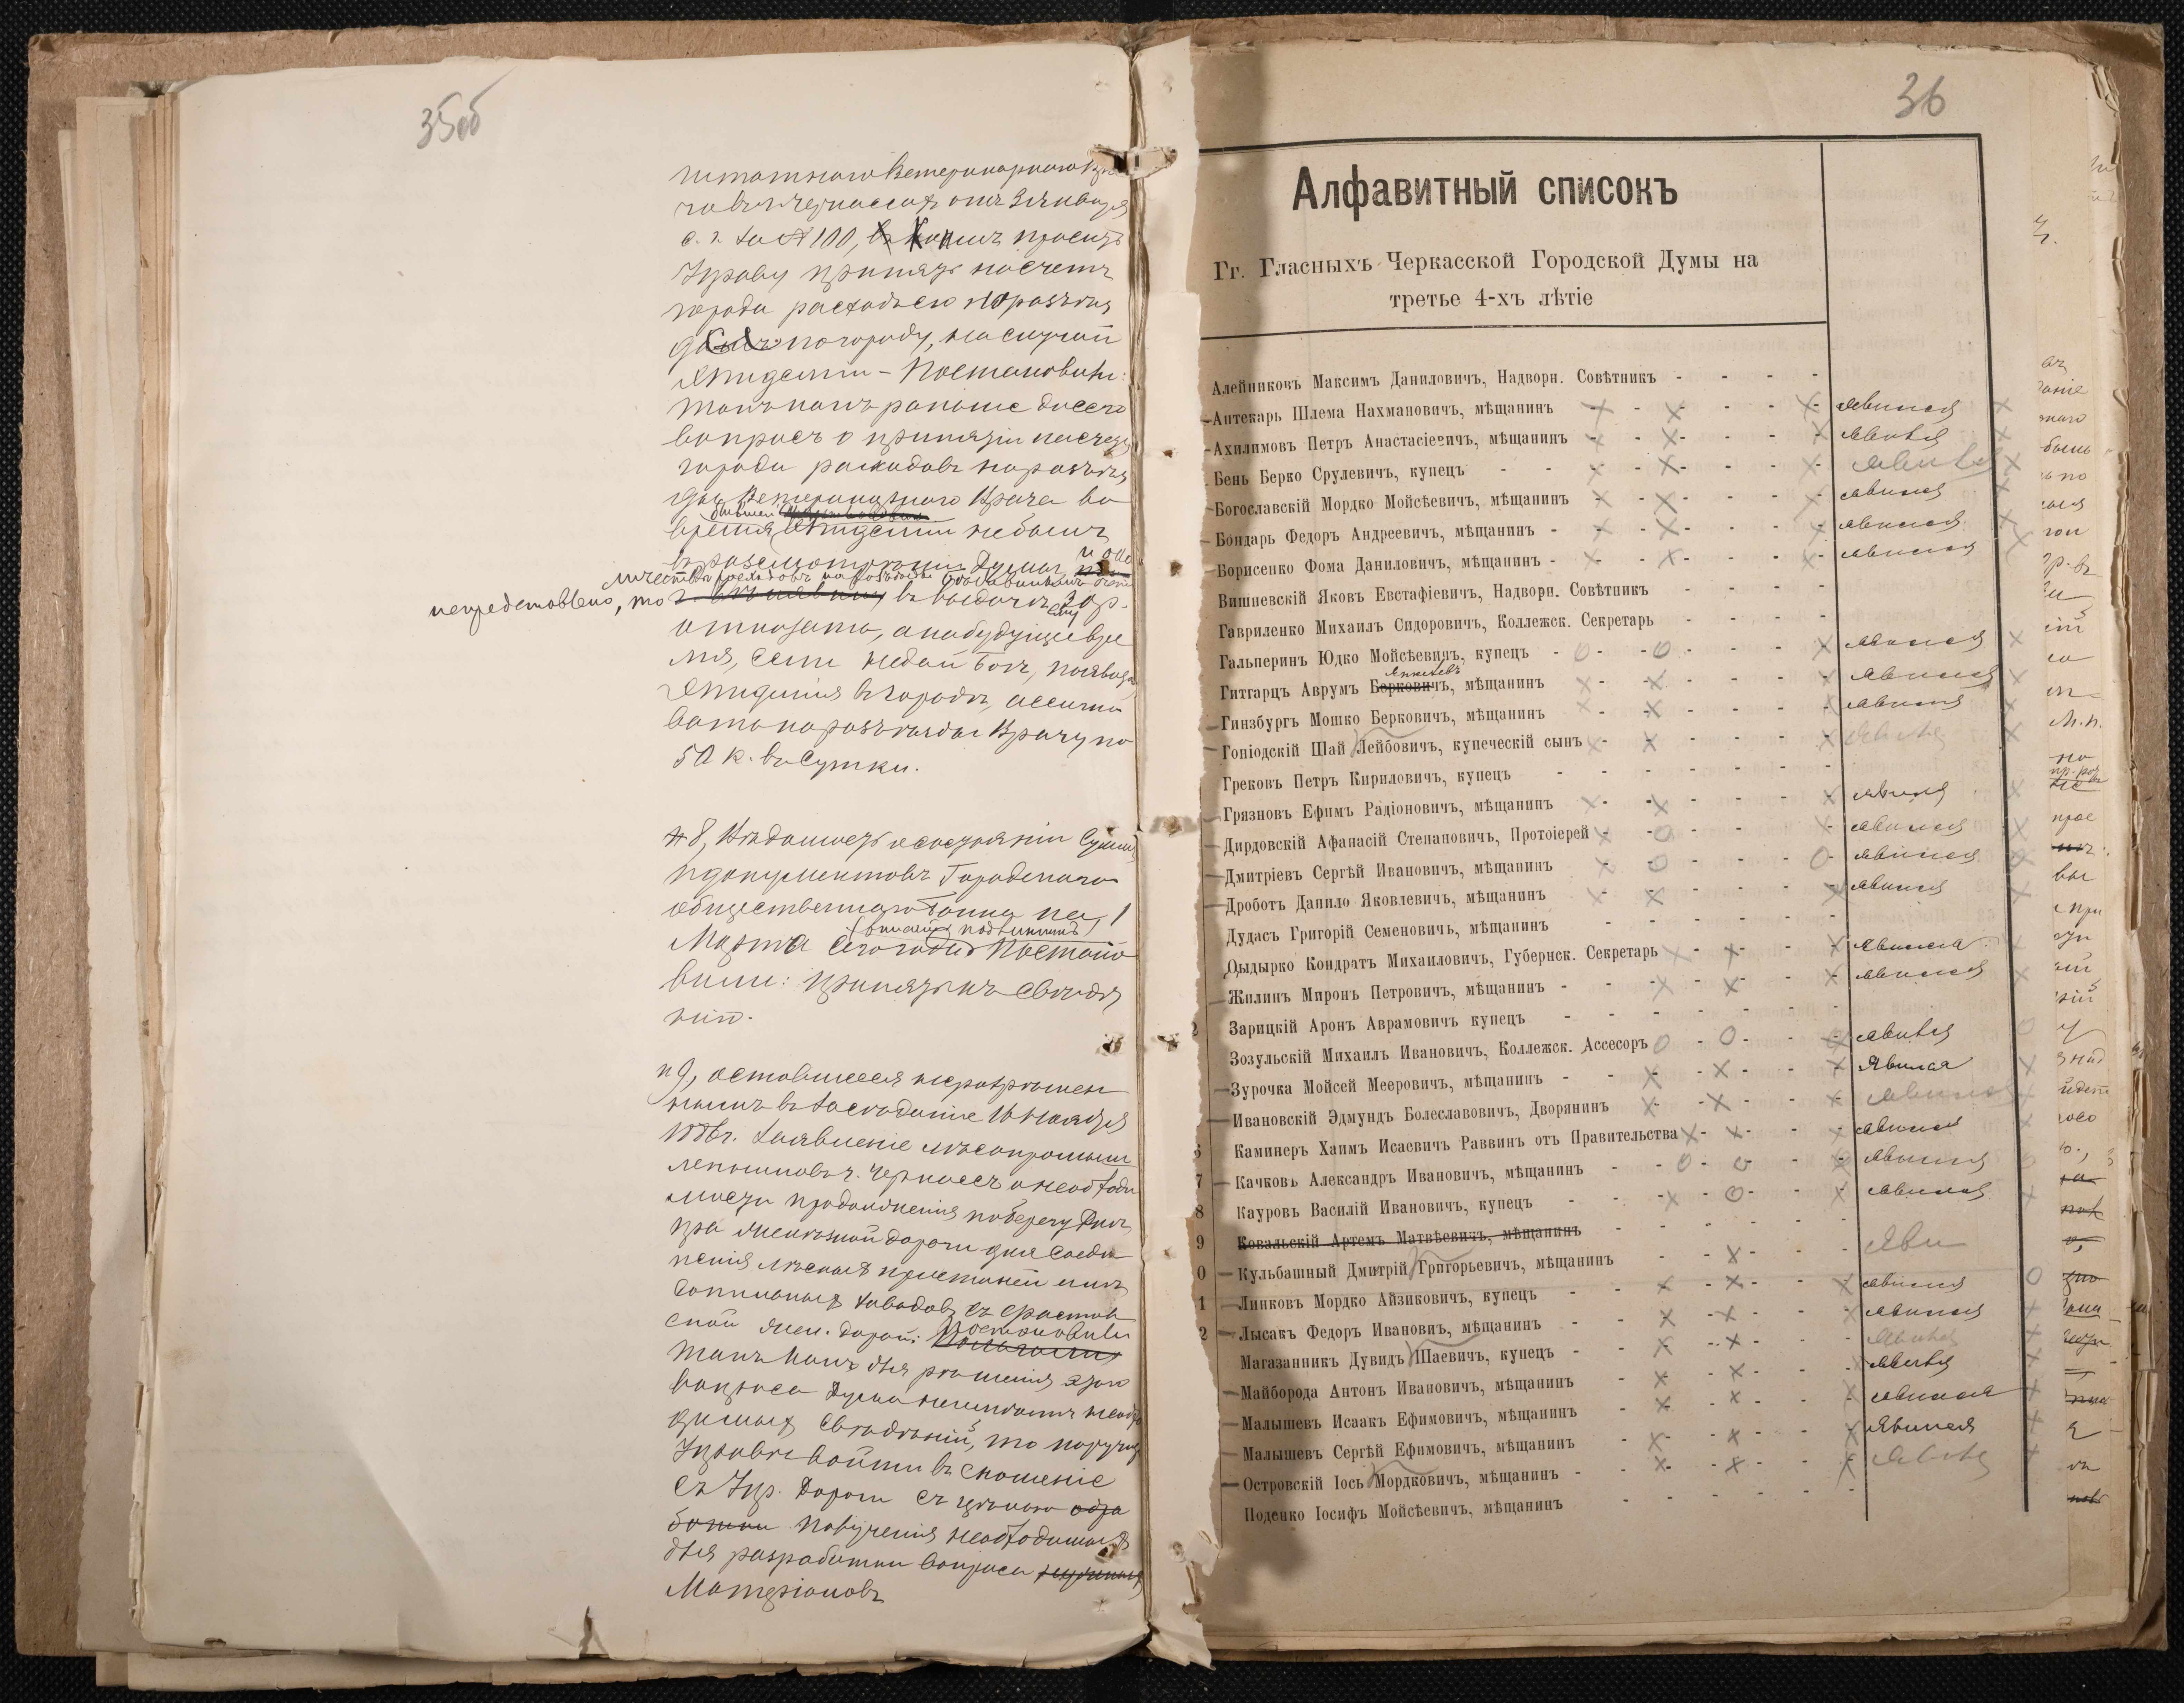 35об
штатнаго Ветеринарнаго Вра
ча въ г. Черкассахъ отъ Января
с. г. за № 100, Коимъ проситъ
Управу принять на счетъ
города расходъ его по разъѣз
дамъ по городу, на случай
Эпидеміи - Постановили:
такъ какъ раньше сего
вопросъ о принятіи на счетъ
города расходовъ по разъѣз
ды Ветеринарнаго Врача во
бывшей
время Эпидеміи не былъ
въ разсмотрѣніи Думы
расходовъ на разъѣзды
непредставлено, то въ выдачѣ ему
отказать, а на будущее вре
мя, если недай Богъ, появится
Эпидемія въ городѣ, ассигно
вать на разъѣзды Врачу по
50 к. въ сутки.
8, Вѣдомость о состояніи Суммъ
и документовъ Городскаго
общественнаго Банка на 1
Марта сего года Постано
вили: принять къ свѣдѣ
нію.
9, оставшееся неразрѣшен
нымъ въ засѣданіе 16 Ноября
1886 г. Заявленіе лѣсопромыш
ленниковъ г. Черкассъ о необходи
мости продолженія по берегу Днѣ
пра желѣзной дороги для соеди
ненія лѣсныхъ пристаней или
лѣсопильныхъ заводовъ съ Фастов
ской жел. дорогой: Постановили
такъ какъ для рѣшенія этого
вопроса Дума не имѣетъ необхо
димыхъ свѣдѣній, то поручить
Управѣ войти въ сношеніе
съ Упр. дороги съ цѣлью
полученія необходимыхъ
для разработки вопроса
Матеріаловъ
36
Алфавитный списокъ
Гг. Гласныхъ Черкасской Городской Думы на
третье 4-хъ лѣтіе
Алейниковъ Максимъ Даниловичъ, Надворн. Совѣтникъ - - - -
Аптекарь Шлема Нахмановичъ, мѣщанинъ явился
Ахилимовъ Петръ Анастасіевичъ, мѣщанинъ явился
Бень Берко Срулевичъ, купецъ явился
Богославскій Мордко Мойсѣевичъ, мѣщанинъ явился
Бондарь Федоръ Андреевичъ, мѣщанинъ явился
Борисенко Фома Даниловичъ, мѣщанинъ явился
Вишневскій Яковъ Евстафіевичъ, Надворн. Совѣтникъ
Гавриленко Михаилъ Сидоровичъ, Коллежск. Секретарь
Гальперинъ Юдко Мойсѣевинъ, купецъ явился
Гитгарцъ Аврумъ Берковичъ, мѣщанинъ явился
Гинзбургъ Мошко Берковичъ, мѣщанинъ явился
Гоніодскій Шай Лейбовичъ, купеческій сынъ явился
Грековъ Петръ Кириловичъ, купецъ
Грязновъ Ефимъ Радіоновичъ, мѣщанинъ явился
Дирдовскій Афанасій Степановичъ, Протоіерей явился
Дмитріевъ Сергѣй Ивановичъ, мѣщанинъ явился
Дроботъ Данило Яковлевичъ, мѣщанинъ явился
Дудасъ Григорій Семеновичъ, мѣщанинъ
Дыдырко Кондратъ Михаиловичъ, Губернск. Секретарь явился
Жилинъ Миронъ Петровичъ, мѣщанинъ явился
2 Зарицкій Аронъ Аврамовичъ купецъ
Зозульскій Михаилъ Ивановичъ, Коллежск. Ассесоръ явился
Зурочка Мойсей Мееровичъ, мѣщанинъ Явился
Ивановскій Эдмундъ Болеславовичъ, Дворянинъ явился
Каминеръ Хаимъ Исаевичъ Раввинъ отъ Правительства явился
7 Качковъ Александръ Ивановичъ, мѣщанинъ явился
8 Кауровъ Василій Ивановичъ, купецъ явился
9 Ковальскій Артемъ Матвѣевичъ, мѣщанинъ
0 Кульбашный Дмитрій Григорьевичъ, мѣщанинъ Яви
1 Линковъ Мордко Айзиковичъ, купецъ явился
2 Лысакъ Федоръ Ивановиъ, мѣщанинъ явился
Магазанникъ Дувидъ Шаевичъ, купецъ явился
Майборода Антонъ Ивановичъ, мѣщанинъ явился
Малышевъ Исаакъ Ефимовичъ, мѣщанинъ явился
Малышевъ Сергѣй Ефимовичъ, мѣщанинъ Явился
Островскій Іось Мордковичъ, мѣщанинъ явился
Поденко Іосифъ Мойсѣевичъ, мѣщанинъ